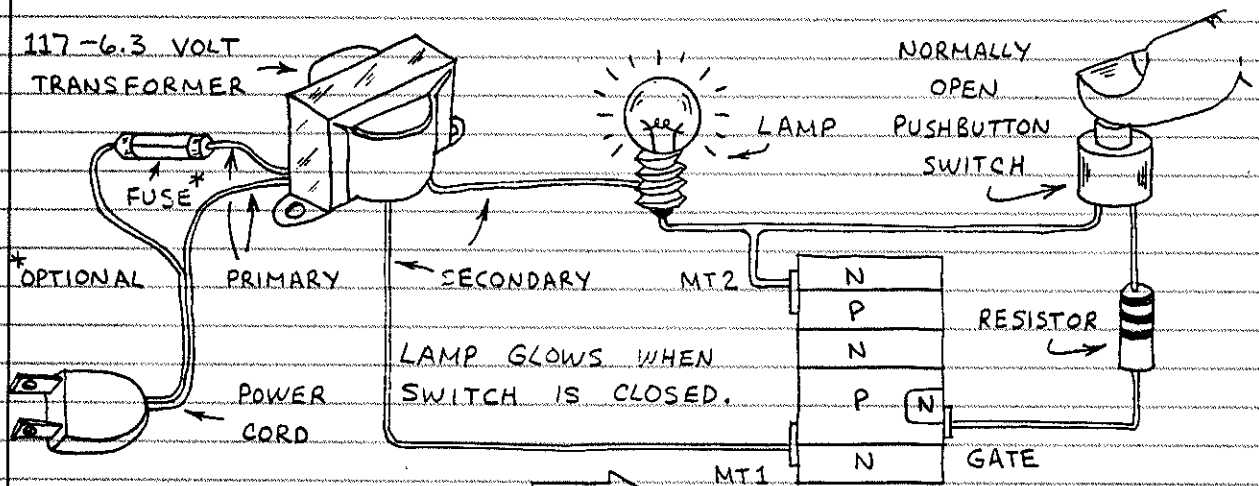 117-6.3 VOLT
TRANSFORMER
NORMALLY
OPEN
PUSHBUTTON
SWITCH
LAMP
FUSE*
*OPTIONAL
PRIMARY
SECONDARY
MT2
N
P
N
P N
N
RESISTOR
LAMP GLOWS WHEN
SWITCH IS CLOSED.
POWER
CORD
MT1
GATE